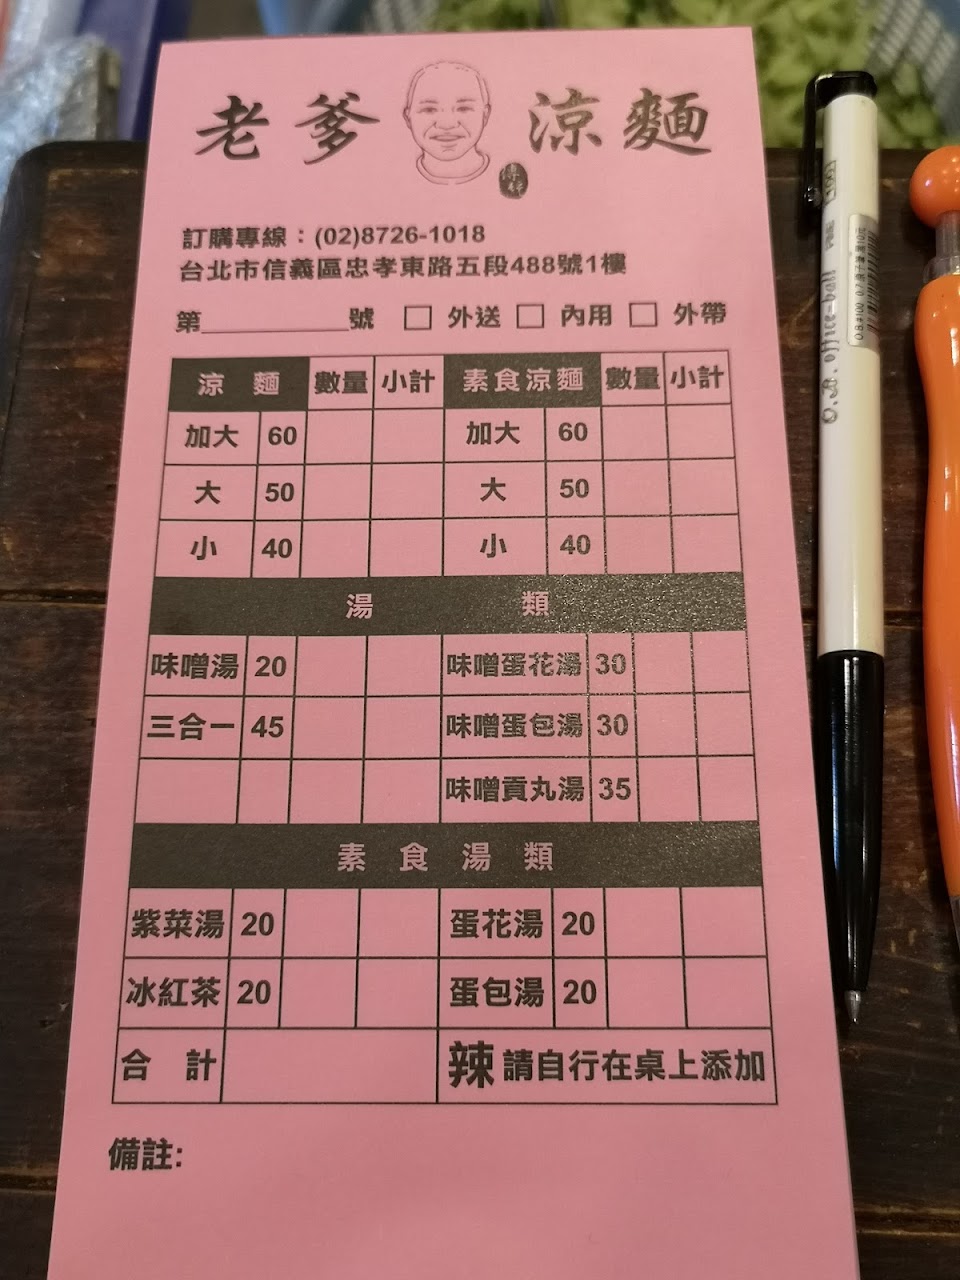 老爹 涼麵
傳統
訂購專線：(02)8726-1018
台北市信義區忠孝東路五段488號1樓
第________號 □ 外送 □ 內用 □ 外帶
涼 麵 數量 小計 素食涼麵 數量 小計
加大 60 加大 60
大 50 大 50
小 40 小 40
湯 類
味噌湯 20 味噌蛋花湯 30
三合一 45 味噌蛋包湯 30
味噌貢丸湯 35
素 食 湯 類
紫菜湯 20 蛋花湯 20
冰紅茶 20 蛋包湯 20
合 計 辣 請自行在桌上添加
備註: